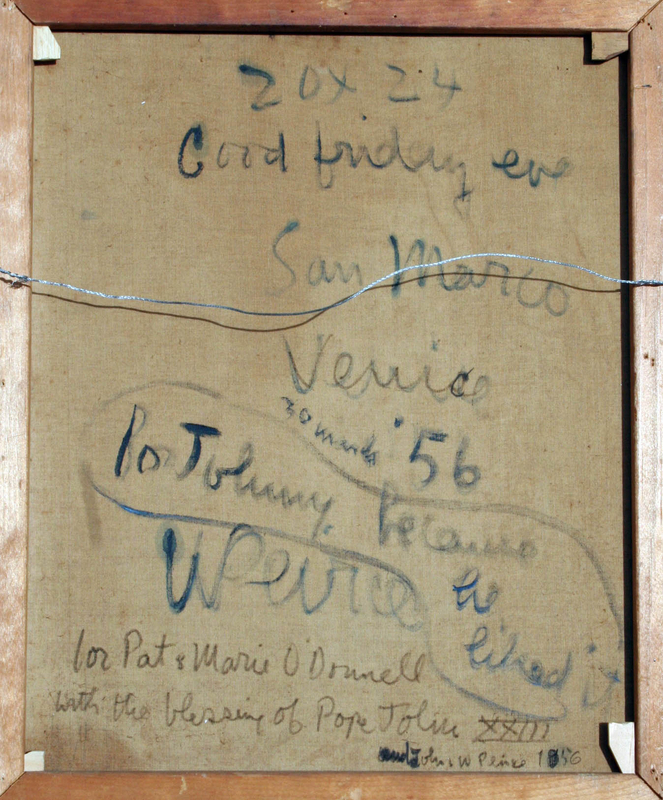 20x24
Good friday eve
San Marco
Venice
30 march '56
for Johnny because
he
liked it
W Peirce
for Pat & Marie O'Donnell
with the blessing of Pope John XXIII
and John W Peirce 1956